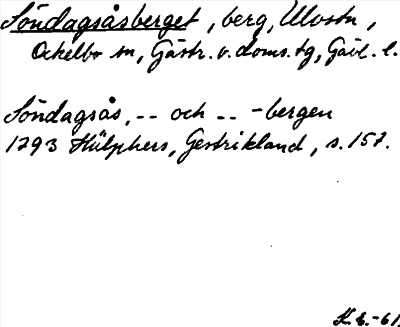 Söndagsåsberget, berg, Ulvstn,
Ockelbo sn, Gästr. v. doms. tg, Gävl. l.
Söndagsås, -- och -- -bergen
1793 Hülphers, Gestrikland, s. 157.